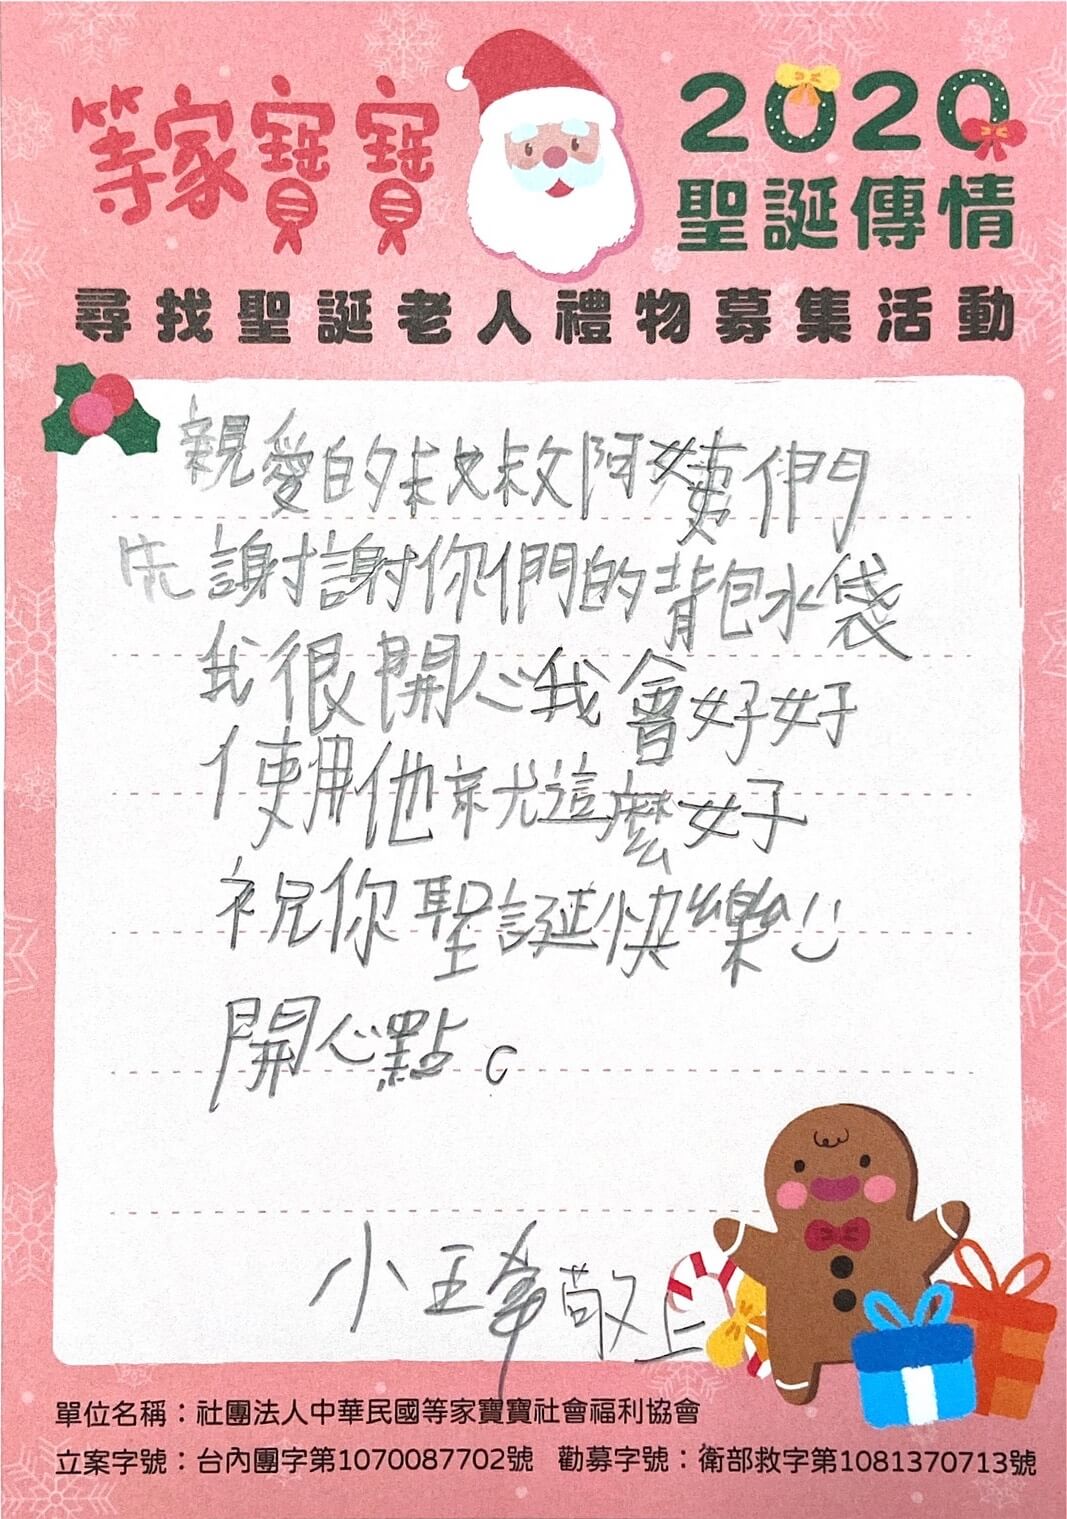 等家寶寶
2020
聖誕傳情
尋找聖誕老人禮物募集活動
親愛的叔叔阿姨們
先謝謝你們的背包水袋
我很開心我會好好
使用他就這麼好
祝你聖誕快樂
開心點。
小王 敬上
單位名稱：社團法人中華民國等家寶寶社會福利協會
立案字號：台內團字第1070087702號 勸募字號：衛部救字第1081370713號